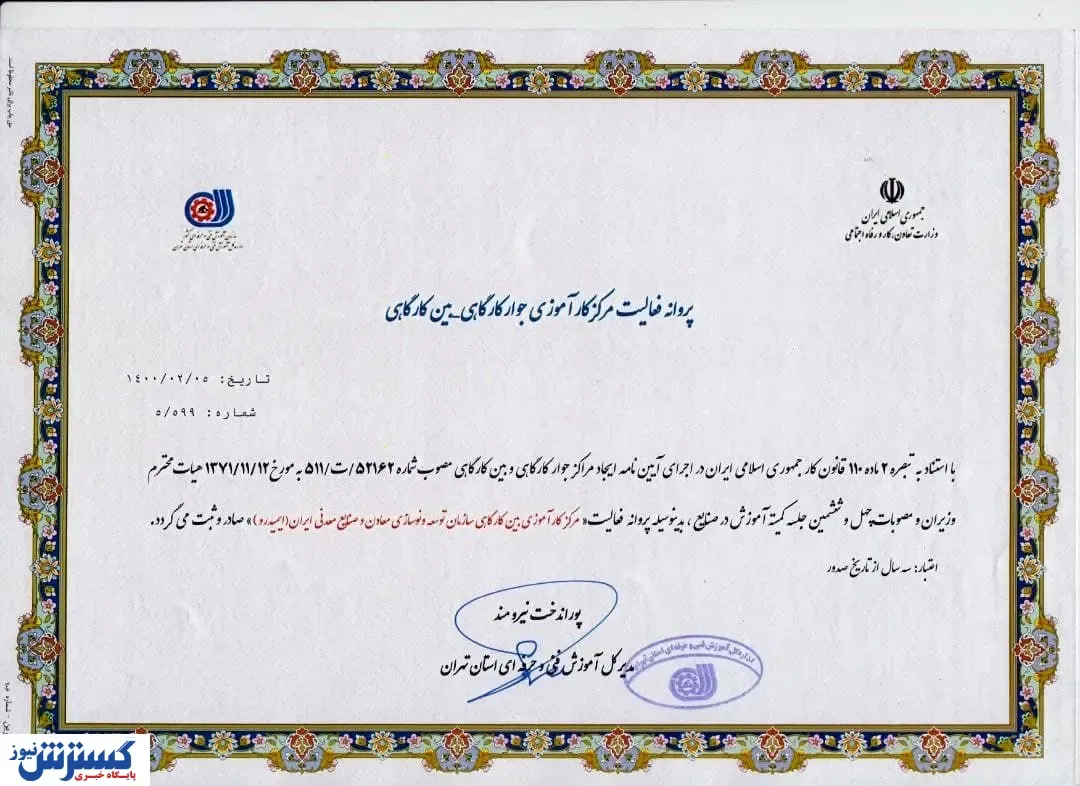 جمهوری اسلامی ایران
وزارت تعاون، کار و رفاه اجتماعی
سازمان آموزش فنی و حرفه ای کشور
اداره کل آموزش فنی و حرفه ای استان تهران
پروانه فعالیت مرکز کارآموزی جوار کارگاهی_بین کارگاهی
تاریخ: ۱۴۰۰/۰۲/۰۵
شماره: ۵/۵۹۹
با استناد به تبصره ۲ ماده ۱۱۰ قانون کار جمهوری اسلامی ایران در اجرای آیین نامه ایجاد مراکز جوار کارگاهی و بین کارگاهی مصوب شماره ۵۲۱۶۲/ت/۵۱۱ به مورخ ۱۳۷۱/۱۱/۱۲ هیات محترم
وزیران و مصوبات چهل و ششمین جلسه کمیته آموزش در صنایع ، بدینوسیله پروانه فعالیت« مرکز کارآموزی بین کارگاهی سازمان توسعه و نوسازی معادن و صنایع معدنی ایران(ایمیدرو)» صادر و ثبت می گردد.
اعتبار: سه سال از تاریخ صدور
پوراندخت نیرومند
مدیر کل آموزش فنی و حرفه ای استان تهران
اداره کل آموزش فنی و حرفه ای استان تهران
گسترش نیوز
پایگاه خبری